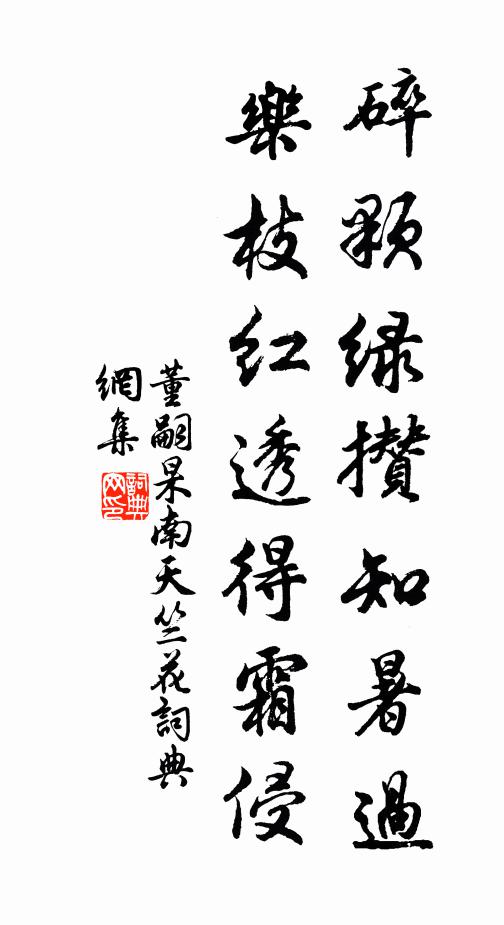 碎顆綠攢知暑過
樂枝紅透得霜侵
董嗣杲南天竺花詞典
網集
詞典
网印